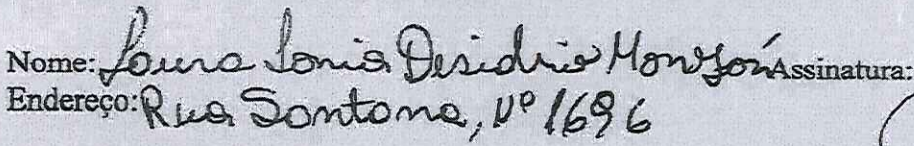 Nome: Laura Sonia Desidrio Monzón Assinatura:
Endereço: Rua Santana, Nº 1696